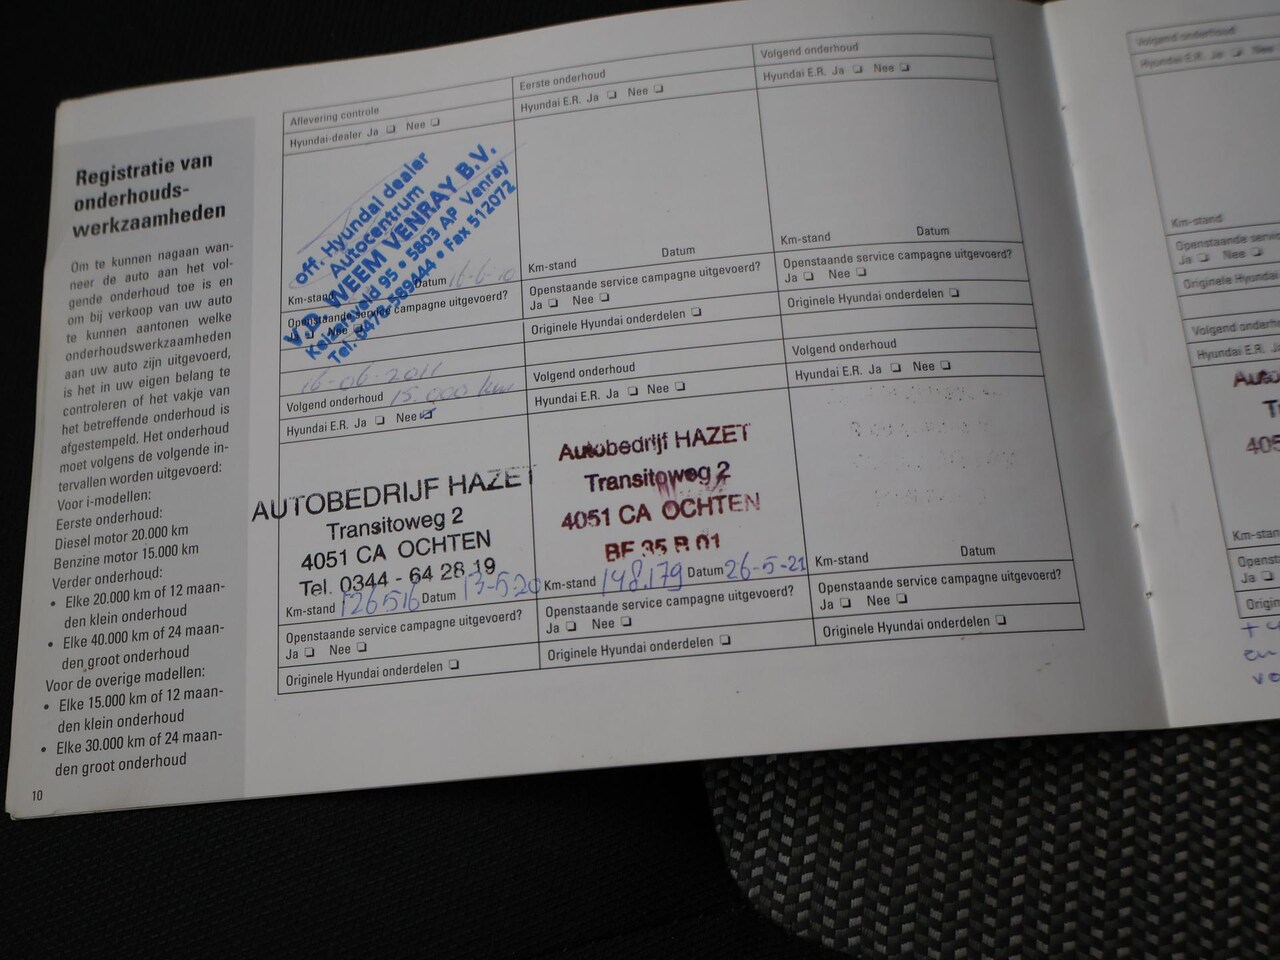 Registratie van
onderhouds-
werkzaamheden
Om te kunnen nagaan wan-
neer de auto aan het vol-
gende onderhoud toe is en
om bij verkoop van uw auto
te kunnen aantonen welke
onderhoudswerkzaamheden
aan uw auto zijn uitgevoerd,
is het in uw eigen belang te
controleren of het vakje van
het betreffende onderhoud is
afgestempeld. Het onderhoud
moet volgens de volgende in-
tervallen worden uitgevoerd:
Voor i-modellen:
Eerste onderhoud:
Diesel motor 20.000 km
Benzine motor 15.000 km
Verder onderhoud:
• Elke 20.000 km of 12 maan-
den klein onderhoud
• Elke 40.000 km of 24 maan-
den groot onderhoud
Voor de overige modellen:
• Elke 15.000 km of 12 maan-
den klein onderhoud
• Elke 30.000 km of 24 maan-
den groot onderhoud
10
Aflevering controle
Hyundai-dealer Ja ❑ Nee ❑
off. Hyundai dealer
Autocentrum
v.d. WEEM VENRAY B.V.
Keizersveld 95 • 5803 AP Venray
Tel. 0478-589444 • Fax 512072
Km-stand Datum 16-6-10
Openstaande service campagne uitgevoerd?
Nee
Eerste onderhoud
Hyundai E.R. Ja ❑ Nee ❑
Km-stand Datum
Openstaande service campagne uitgevoerd?
Ja ❑ Nee ❑
Originele Hyundai onderdelen ❑
Volgend onderhoud
Hyundai E.R. Ja ❑ Nee ❑
Km-stand Datum
Openstaande service campagne uitgevoerd?
Ja ❑ Nee ❑
Originele Hyundai onderdelen ❑
16-06-2011
Volgend onderhoud 15.000 km
Hyundai E.R. Ja ❑ Nee ☑
AUTOBEDRIJF HAZET
Transitoweg 2
4051 CA OCHTEN
Tel. 0344 - 64 28 19
Km-stand 126516 Datum 13-5-20
Openstaande service campagne uitgevoerd?
Ja ❑ Nee ❑
Originele Hyundai onderdelen ❑
Volgend onderhoud
Hyundai E.R. Ja ❑ Nee ❑
Autobedrijf HAZET
Transitoweg 2
4051 CA OCHTEN
Km-stand 148.179 Datum 26-5-21
Openstaande service campagne uitgevoerd?
Ja ❑ Nee ❑
Originele Hyundai onderdelen ❑
Volgend onderhoud
Hyundai E.R. Ja ❑ Nee ❑
Km-stand Datum
Openstaande service campagne uitgevoerd?
Ja ❑ Nee ❑
Originele Hyundai onderdelen ❑
Volgend onderhoud
Hyundai E.R. Ja ❑ Nee ❑
Km-stand
Openstaande servic
Ja ❑ Nee ❑
Originele Hyundai
Volgend onderh
Hyundai E.R. Ja